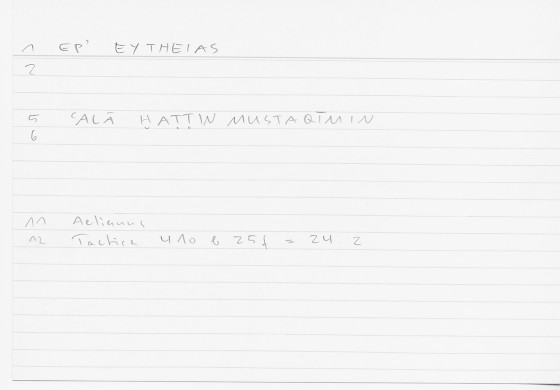 1 EP' EYTHEIAS
2
5 ʿALĀ ḪAṬṬIN MUSTAQĪMIN
6
11 Aelianus
12 Tactica 410 b 25f = 24 2